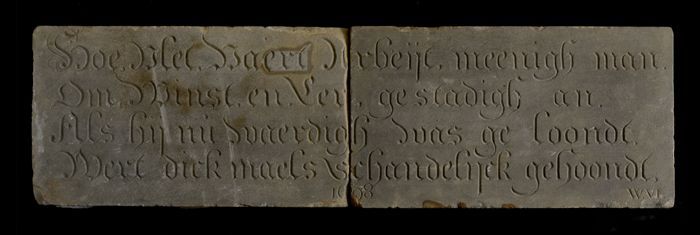 Hoe, Vlet, Vaert Arbeijt, meenigh man.
Om Winst, en, Eer, gestadigh an.
Als hij nu Waerdigh Was ge loondt,
Wert dick maels schandelijck gehoondt,
1668 W.V.